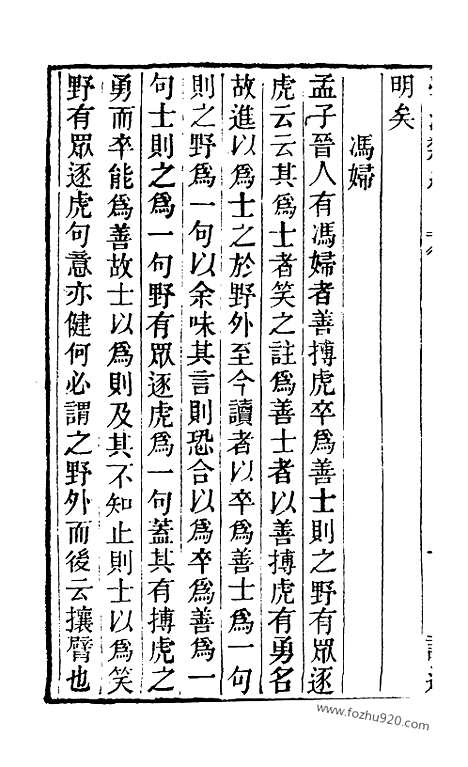 明矣
馮婦
孟子晉人有馮婦者善摶虎卒爲善士則之野有眾逐
虎云云其爲士者笑之註爲善士者以善摶虎有勇名
故進以爲士之於野外至今讀者以卒爲善士爲一句
則之野爲一句以余味其言則恐合以爲卒爲善爲一
句士則之爲一句野有眾逐虎爲一句蓋其有摶虎之
勇而卒能爲善故士以爲則及其不知止則士以爲笑
野有眾逐虎句意亦健何必謂之野外而後云攘臂也
www.fozhu920.com